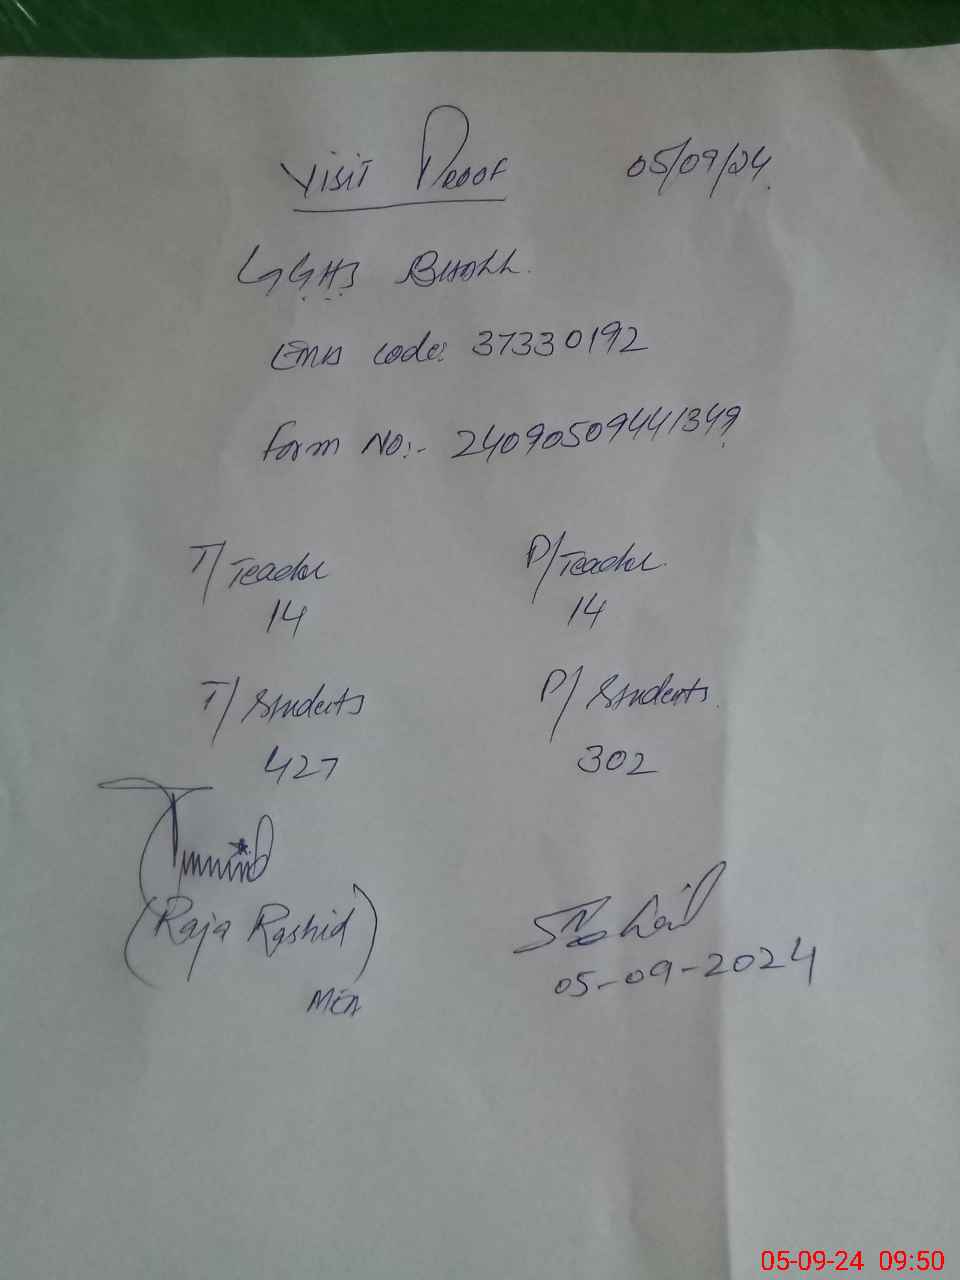 Visit Proof 05/09/24
G.G.H.S Bholl.
EMIS code: 37330192
Form No:- 24090509441349
T/Teacher P/Teacher
14 14
T/Students P/Students
427 302
(Raja Rashid)
MEA
05-09-2024
05-09-24 09:50